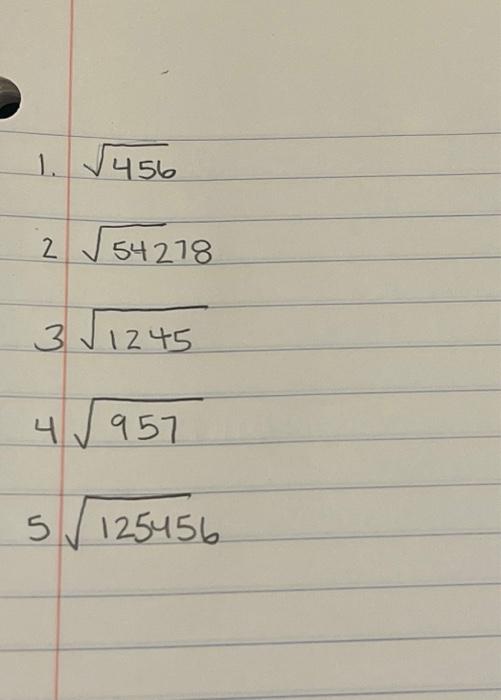 1. √456
2 √54278
3 √1245
4 √957
5 √125456